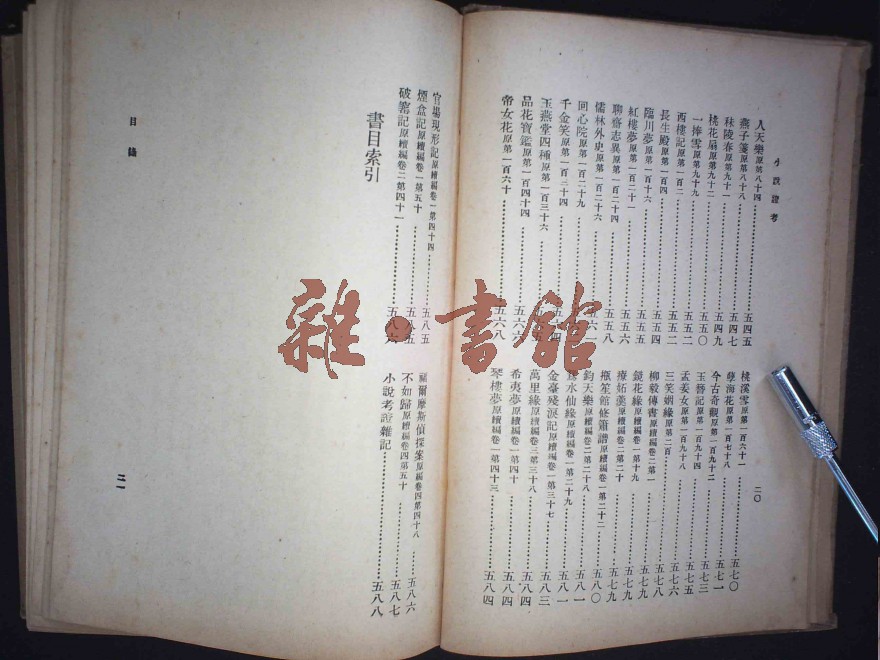 小說證考
人天樂原第八十四……五四五
燕子箋原第八十八……五四七
秣陵春原第九十一……五四九
桃花扇原第九十二……五五〇
一捧雪原第九十九……五五二
西樓記原第一百二……五五二
長生殿原第一百四……五五四
臨川夢原第一百十六……五五五
紅樓夢原第一百二十一……五五六
聊齋志異原第一百二十四……五五八
儒林外史原第一百二十六……五六一
回心院原第一百二十九
千金笑原第一百三十四
玉燕堂四種原第一百三十六
品花寶鑑原第一百四十四……五六六
帝女花原第一百六十……五六八
桃溪雪原第一百六十一……五七〇
孽海花原第一百七十八……五七一
今古奇觀原第一百九十二……五七三
玉簪記原第一百九十七……五七五
孟姜女原第一百九十八……五七六
三笑姻緣原第二百……五七九
柳毅傳書原續編卷二第一……五七九
鏡花緣原續編卷一第十九……五七九
療妬羹原續編卷二第二十……五七九
瓶笙館修簫譜原續編卷一第二十二……五八〇
鈞天樂原續編卷二第二十八……五八一
水仙緣原續編卷一第二十九……五八一
金臺殘淚記原續編卷一第三十七……五八三
萬里緣原續編卷三第三十八……五八四
希夷夢原續編卷一第四十……五八四
琴樓夢原續編卷一第四十三……五八四
二〇
官場現形記原續編卷一第四十四……五八五
煙盒記原續編卷一第五十……五八五
破窰記原續編卷二第四十一……五八六
書目索引
福爾摩斯偵探案原編卷四第四十八……五八六
不如歸原續編卷四第五十……五八七
小說考證雜記……五八八
目錄
二一
雜·書館